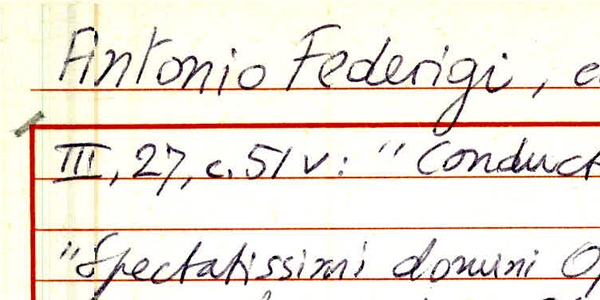 Antonio Federigi, e
III, 27, c. 51v: "Conduct
"Spectatissimi domini Op